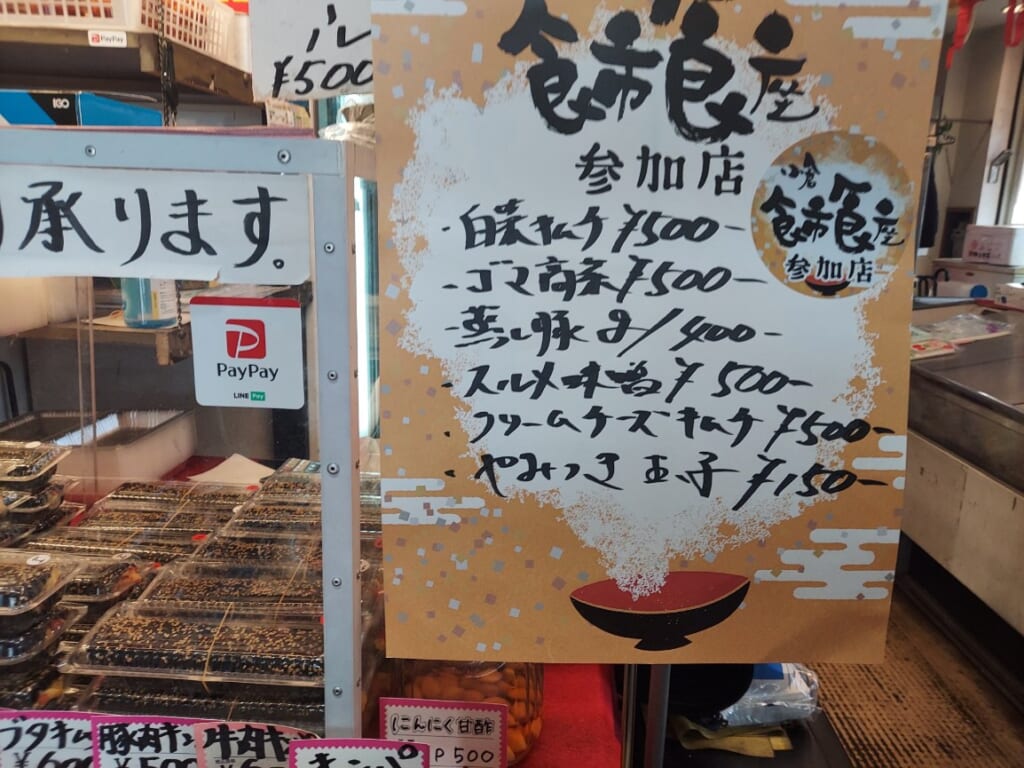 PayPay
ル
¥500
承ります。
PayPay
LINE Pay
食市食座
参加店
・白菜キムチ ¥500-
・ゴマ高菜 ¥500-
・蒸し豚 g/400-
・スルメ味付 ¥500-
・クリームチーズキムチ ¥500-
・やみつき玉子 ¥150-
小倉
食市食座
参加店
ブタキム
¥600
豚肉キン
¥500
牛肉キン
にんにく甘酢
P500